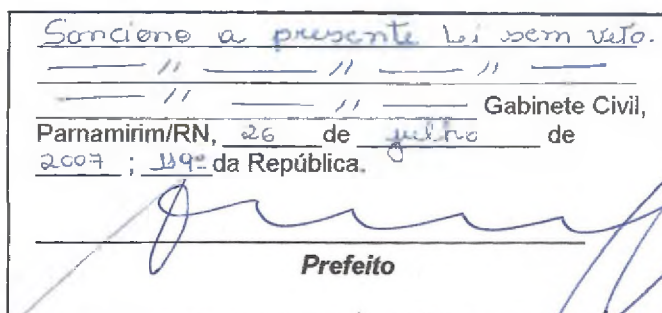 Sanciono a presente Lei sem veto.
— // — // — // —
— // — // — Gabinete Civil,
Parnamirim/RN, 26 de julho de
2007 ; 119º da República.
Prefeito